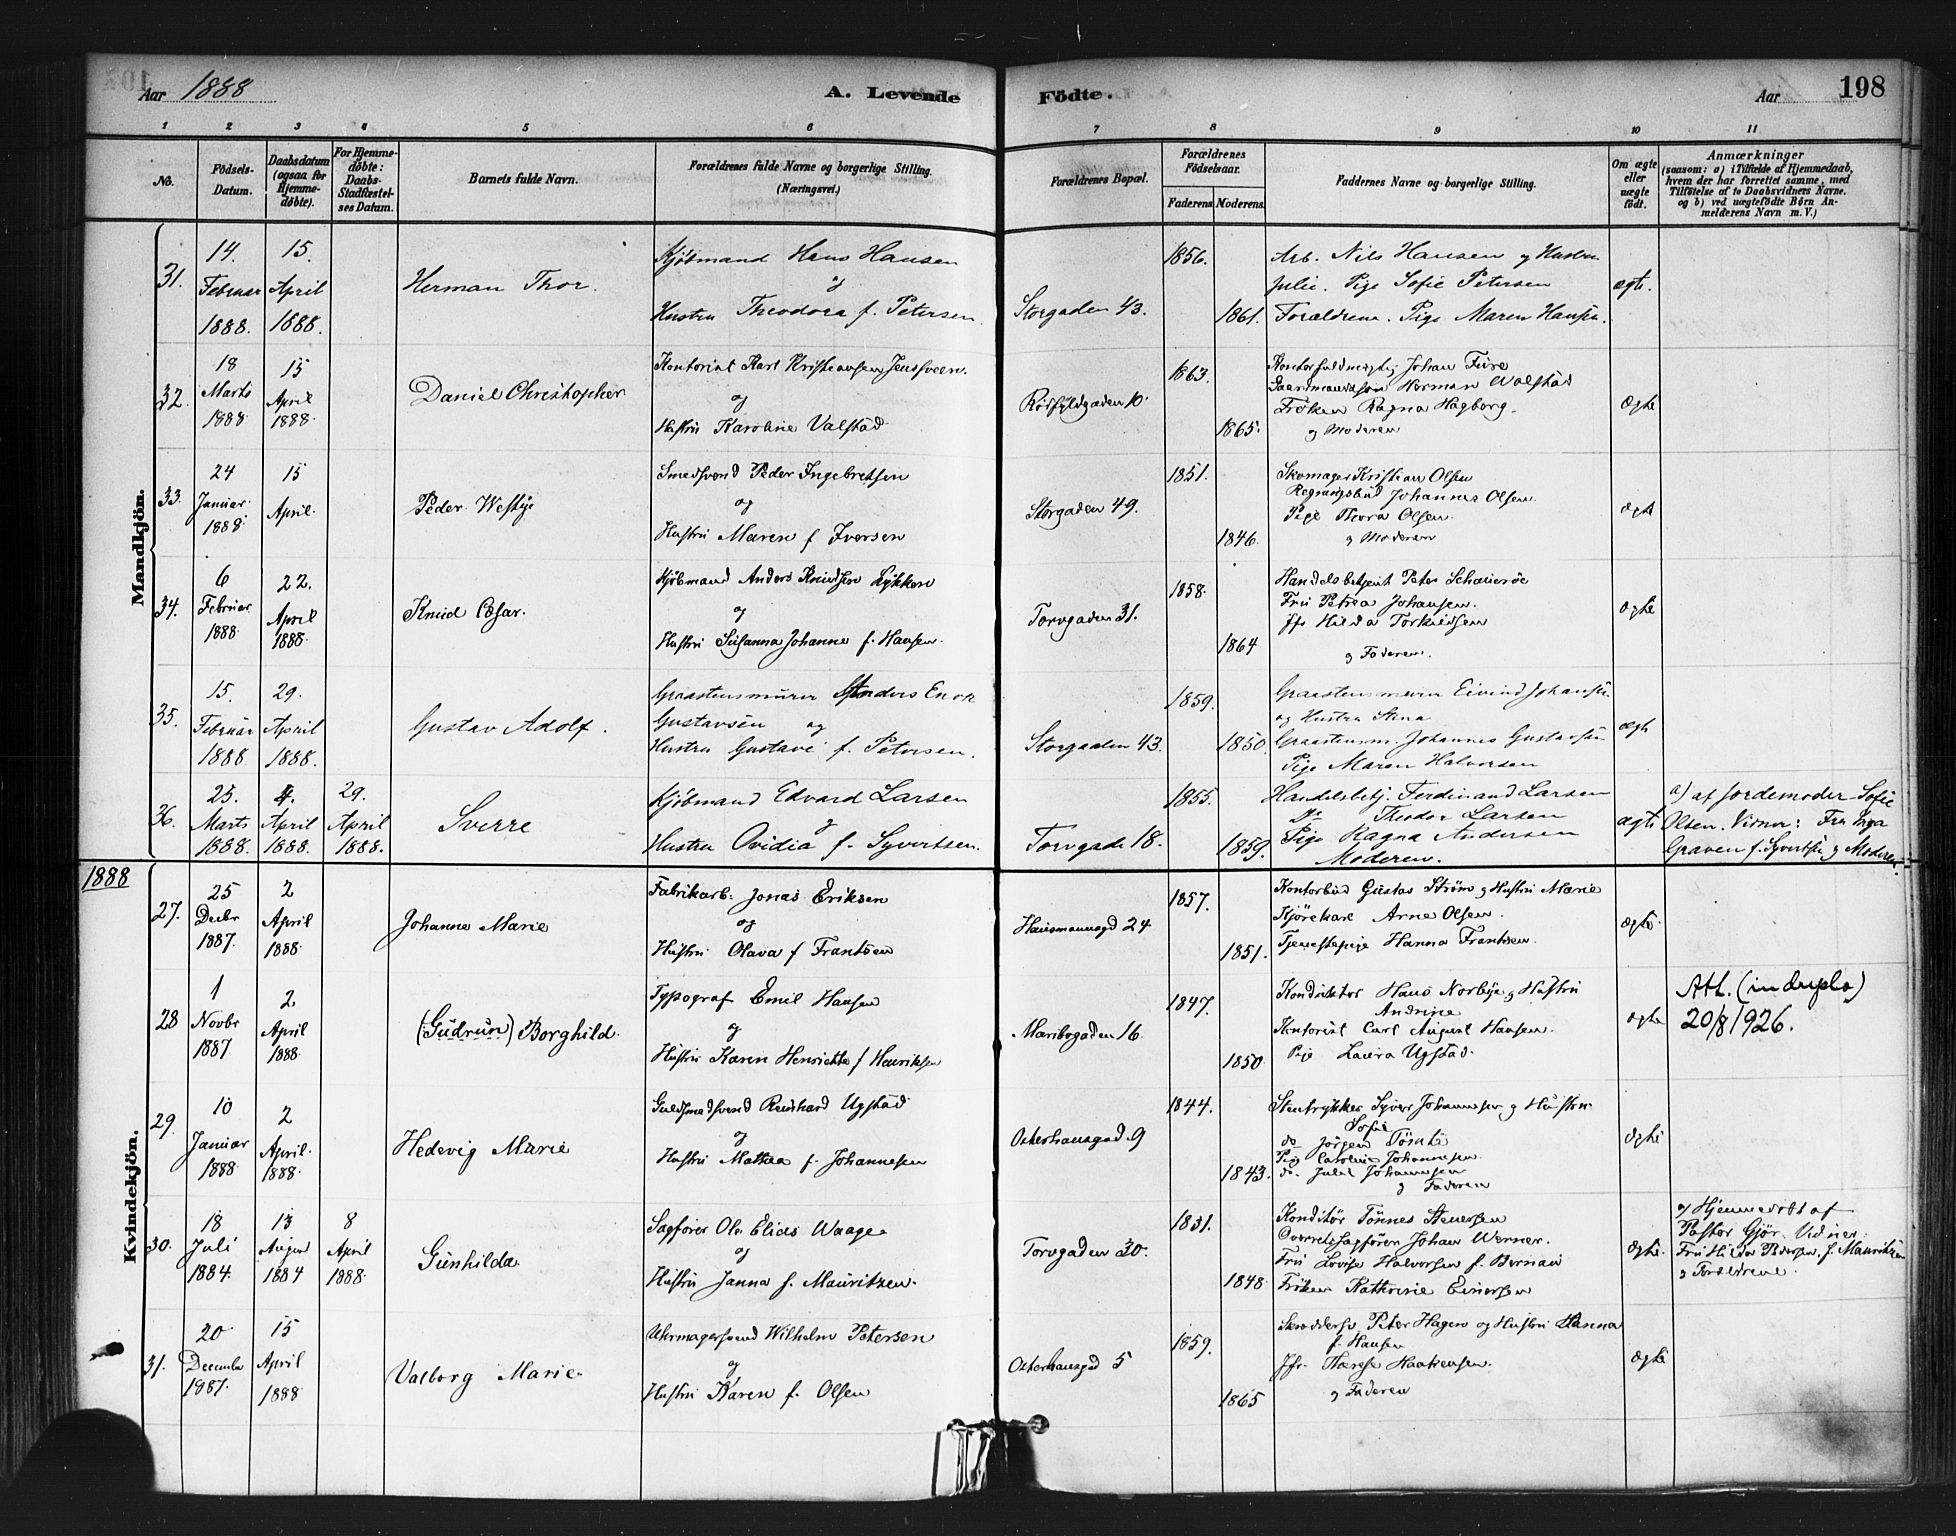 Aar 1888
A. Levende Födte.
Aar 198
1 2 3 4 5 6 7 8 9 10 11
No.
Födsels-Datum.
Daabsdatum (ogsaa for Hjemme-döbte).
For Hjemme-døbte: Daabs-Stadfæstel-ses Datum.
Barnets fulde Navn.
Forældrenes fulde Navne og borgerlige Stilling. (Næringsvei.)
Forældrenes Bopæl.
Forældrenes Födselsaar.
Faderens Moderens.
Faddernes Navne og borgerlige Stilling.
Om ægte eller uægte födt.
Anmærkninger
(saasom: a) i Tilfælde af Hjemmedaab, hvem der har forrettet samme, med Tilföielse af to Daabsvidners Navne, og b) ved uægtefödte Börn An-melderens Navn m. V.)
Mandkjön.
31. 14. Februar 1888. 15. April 1888.
Herman Thor.
Kjøbmand Hans Hansen
og
Hustru Theodora f. Petersen.
Storgaden 43.
1856. 1861.
Arb. Nils Hansen og Hustru
Julie. Pige Sofie Petersen
Forældrene. Pige Maren Hansen.
ægte.
32. 18 Marts 1888 15 April 1888.
Daniel Christopher
Kontorist Karl Kristiansen Jensveen.
og
Hustru Karoline Valstad
10.
1863. 1865.
Kontorfuldmægtig Johan Fure
Gaardmandssøn Herman Valstad
Frøken Ragna Hagborg.
og Moderen
Ægte
33. 24 Januar 1888 15 April.
Peder Westye
Smedsvend Peder Ingebretsen
og
Hustru Maren f Iversen
Storgaden 49.
1851. 1846.
Skomager Kristian Olsen
Regningsbud Johannes Olsen.
Pige Thora Olsen.
og Moderen
ægte
34. 6 Februar 1888 22. April 1888.
Knud Cæsar.
Kjøbmand Anders Knudsen Lykken
og
Hustru Susanna Johanne f. Hansen.
Torvgaden 31.
1858. 1864
Handelsbetjent Peter
Fru Petrea Johansen.
Jfr Hilda Torkildsen
og Faderen.
ægte
35. 15. Februar 1888 29. April 1888.
Gustav Adolf.
Graastensmurer Anders Enok
Gustavsen og
Hustru Gustave f. Petersen.
Storgaden 43.
1859. 1850.
Graastensmurer Eivind Johansen
og Hustru Stina
Graastensm. Johannes Gustavsen
Pige Maren Halvorsen
ægte
36. 25. Marts 1888. 4. April 1888. 29. April 1888.
Sverre
Kjøbmand Edvard Larsen
og
Hustru Ovidia f. Syvertsen.
Torvgade 18.
1855. 1859.
Handelsbetj. Ferdinand Larsen
Do Theodor Larsen
Pige Ragna Andersen
Moderen.
ægte
a) af Jordemoder Sofie
Olsen. Vidner: Fru Inga
Graven f. Syvertsen og Moderen.
1888
Kvindekjön.
27. 25 Decbr 1887. 2 April 1888
Johanne Marie
Fabrikarb. Jonas Eriksen
og
Hustru Olava f Frantsen
Hausmannsgd 24
1857. 1851.
Kontorbud Gustav Strøm og Hustru Marie
Kjørekarl Arne Olsen.
Tjenestepige Hanna Frantsen.
ægte.
28 1 Novbr 1887 2 April 1888.
(Gudrun) Borghild.
Typograf Emil Hansen
og
Hustru Karen Henriette f Henriksen
Maribogaden 16.
1847. 1850
Konduktør Hans Norbye og Hustru
Andrine
Kontorist Carl August Hansen.
Pige Laura Ugstad.
ægte
Att. (in duplo)
20/8 1926.
29. 10 Januar 1888 2 April. 1888.
Hedevig Marie
Guldsmedsvend Reinhard Ugstad
og
Hustru Mathea f. Johannesen
Osterhausgad. 9
1844. 1843.
Stentrykker Syver Johannesen og Hustru
Sofie
do Jørgen Tømte
Pige Caroline Johannesen.
do. Julie Johannesen
og Faderen
Ægte
30. 18 Juli 1884. 13 August 1884 8 April 1888.
Gunhilda
Sagfører Ole Elias Waage
og
Hustru Janna f. Mauritzen.
Torvgaden 30.
1831. 1848.
Konditor Tønnes Stenersen
Overretssagfører Johan Werner.
Fru Lovise Halvorsen f. Bernau
Frøken Kathrine Einersen
Ægte.
a/ Hjemmedøbt af
Pastor Gjør. Vidner:
Fru Hilda Pedersen f. Mauritzen
og Forældrene.
31. 20 December 1887. 15 April 1888
Valborg Marie.
Uhrmagersvend Wilhelm Petersen
og
Hustru Karen f. Olsen
Osterhausgd 5
1859. 1865
Skræddersv Peter Hagen og Hustru Hanna
f. Hansen
Jfr. Therese Haakensen.
og Faderen
Ægte